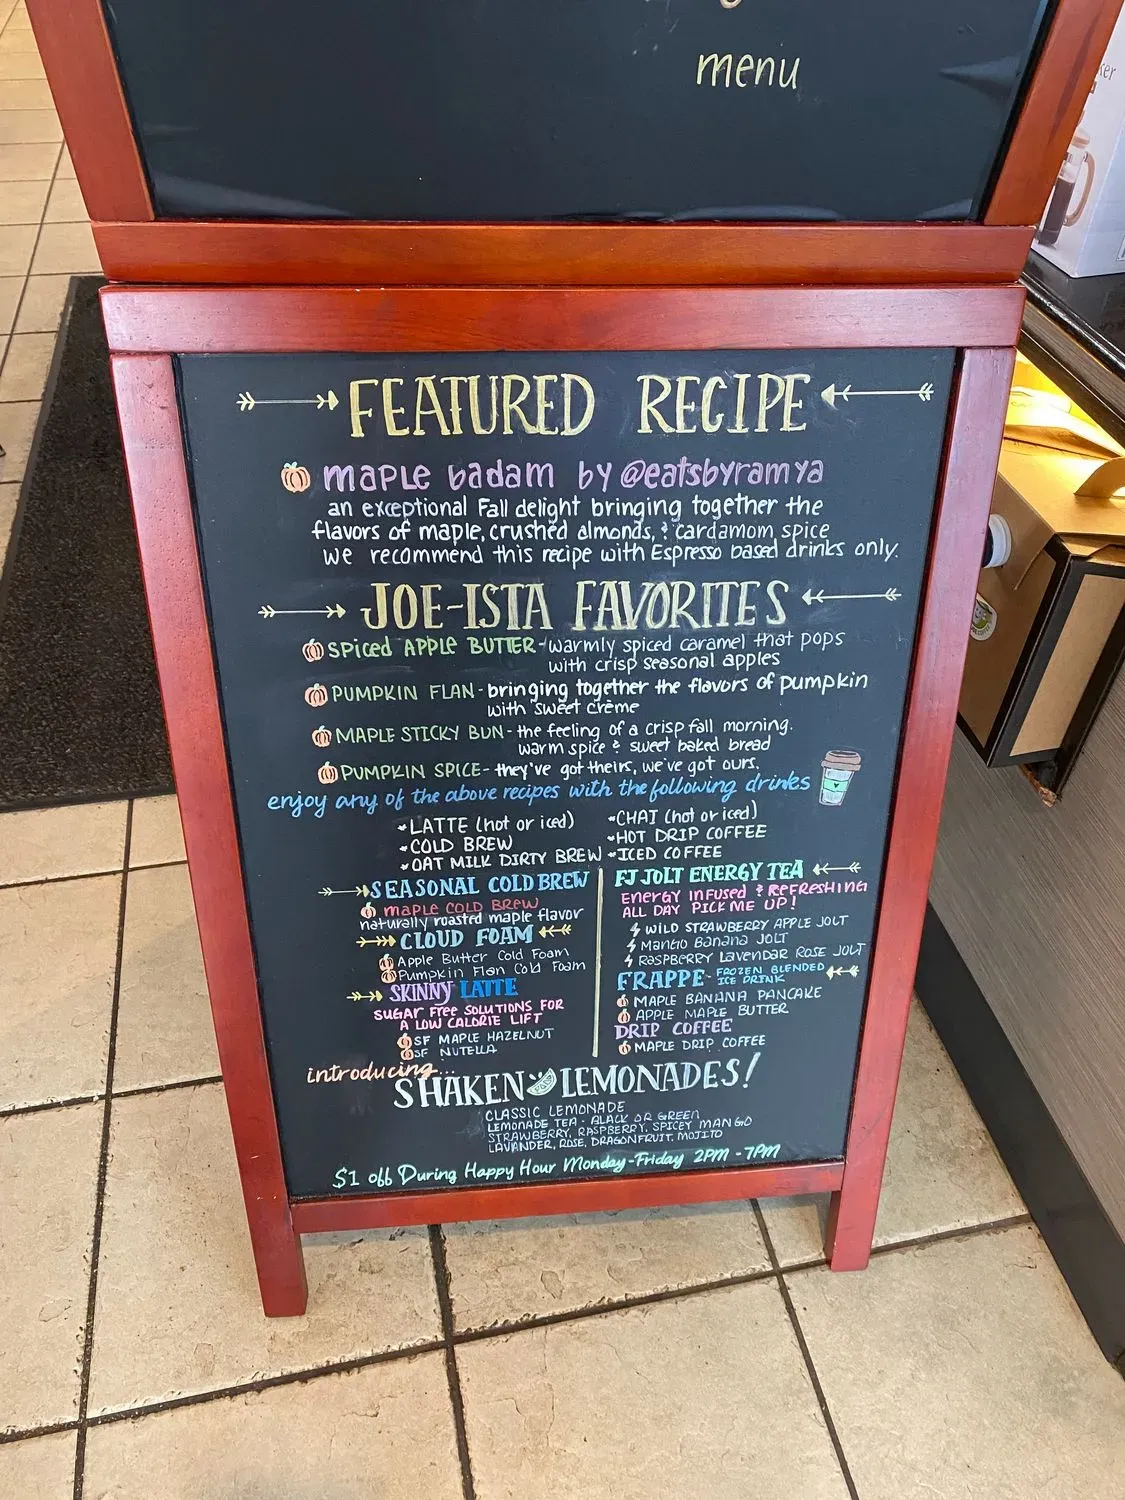 menu
FEATURED RECIPE
maple badam by @eatsbyramya
an exceptional Fall delight bringing together the
flavors of maple, crushed almonds, & cardamom spice
we recommend this recipe with Espresso based drinks only.
JOE-ISTA FAVORITES
SPICED APPLE BUTTER - warmly spiced caramel that pops
with crisp seasonal apples
PUMPKIN FLAN - bringing together the flavors of pumpkin
with sweet crème
MAPLE STICKY BUN - the feeling of a crisp fall morning.
warm spice & sweet baked bread
PUMPKIN SPICE - they've got theirs, we've got ours.
enjoy any of the above recipes with the following drinks
LATTE (hot or iced)
COLD BREW
OAT MILK DIRTY BREW
CHAI (hot or iced)
HOT DRIP COFFEE
ICED COFFEE
SEASONAL COLD BREW
maple COLD BREW
naturally roasted maple flavor
CLOUD FOAM
Apple Butter Cold Foam
Pumpkin Flan Cold Foam
SKINNY LATTE
SUGAR FREE SOLUTIONS FOR
A LOW CALORIE LIFT
SF MAPLE HAZELNUT
SF NUTELLA
FJ JOLT ENERGY TEA
ENERGY INFUSED & REFRESHING
ALL DAY PICK ME UP!
WILD STRAWBERRY APPLE JOLT
MANGO BANANA JOLT
RASPBERRY LAVENDAR ROSE JOLT
FRAPPE - FROZEN BLENDED
ICE DRINK
MAPLE BANANA PANCAKE
APPLE MAPLE BUTTER
DRIP COFFEE
MAPLE DRIP COFFEE
introducing...
SHAKEN LEMONADES!
CLASSIC LEMONADE
LEMONADE TEA - BLACK OR GREEN
STRAWBERRY, RASPBERRY, SPICEY MANGO
LAVANDER, ROSE, DRAGONFRUIT, MOJITO
$1 off During Happy Hour Monday-Friday 2PM - 7PM